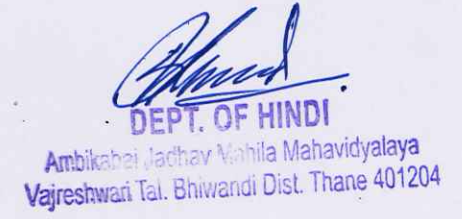 DEPT. OF HINDI
Ambikabai Jadhav Mahila Mahavidyalaya
Vajreshwari Tal. Bhiwandi Dist. Thane 401204